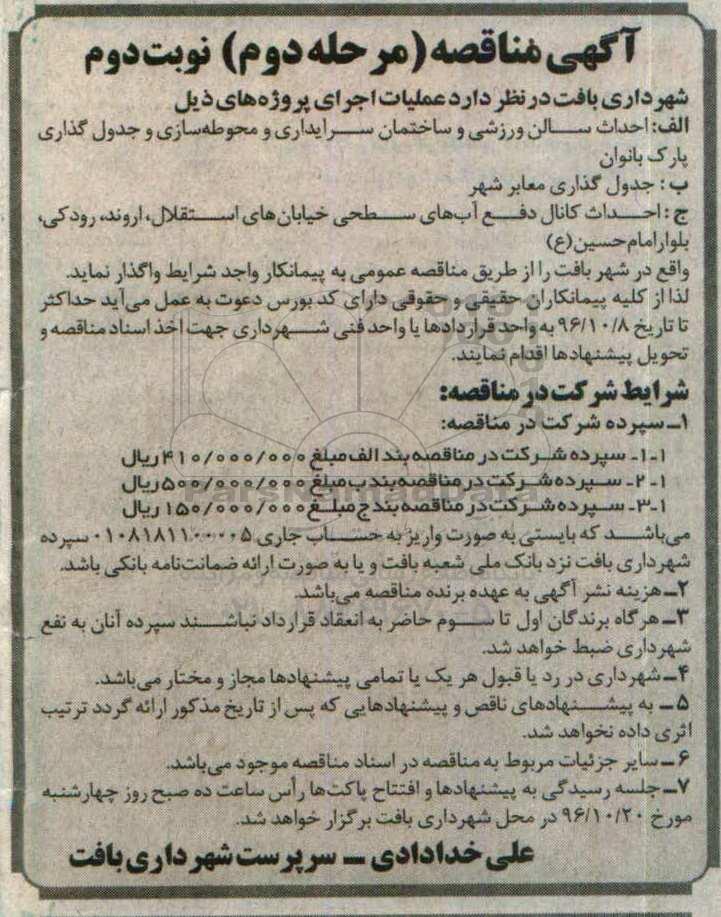 آگهی مناقصه (مرحله دوم) نوبت دوم
شهرداری بافت در نظر دارد عملیات اجرای پروژه‌های ذیل
الف: احداث سالن ورزشی و ساختمان سرایداری و محوطه‌سازی و جدول گذاری
پارک بانوان
ب: جدول گذاری معابر شهر
ج: احداث کانال دفع آب‌های سطحی خیابان‌های استقلال، اروند، رودکی،
بلوار امام حسین (ع)
واقع در شهر بافت را از طریق مناقصه عمومی به پیمانکار واجد شرایط واگذار نماید.
لذا از کلیه پیمانکاران حقیقی و حقوقی دارای کد بورس دعوت به عمل می‌آید حداکثر
تا تاریخ ۹۶/۱۰/۸ به واحد قراردادها یا واحد فنی شهرداری جهت اخذ اسناد مناقصه و
تحویل پیشنهادها اقدام نمایند.
شرایط شرکت در مناقصه:
۱ـ سپرده شرکت در مناقصه:
۱-۱- سپرده شرکت در مناقصه بند الف مبلغ ۴۱۰/۰۰۰/۰۰۰ ریال
۱-۲- سپرده شرکت در مناقصه بند ب مبلغ ۵۰۰/۰۰۰/۰۰۰ ریال
۱-۳- سپرده شرکت در مناقصه بند ج مبلغ ۱۵۰/۰۰۰/۰۰۰ ریال
می‌باشد که بایستی به صورت واریز به حساب جاری ۰۱۰۸۱۸۱۱۰۰۰۰۵ سپرده
شهرداری بافت نزد بانک ملی شعبه بافت و یا به صورت ارائه ضمانت‌نامه بانکی باشد.
۲ـ هزینه نشر آگهی به عهده برنده مناقصه می‌باشد.
۳ـ هرگاه برندگان اول تا سوم حاضر به انعقاد قرارداد نباشند سپرده آنان به نفع
شهرداری ضبط خواهد شد.
۴ـ شهرداری در رد یا قبول هر یک یا تمامی پیشنهادها مجاز و مختار می‌باشد.
۵ـ به پیشنهادهای ناقص و پیشنهادهایی که پس از تاریخ مذکور ارائه گردد ترتیب
اثری داده نخواهد شد.
۶ـ سایر جزئیات مربوط به مناقصه در اسناد مناقصه موجود می‌باشد.
۷ـ جلسه رسیدگی به پیشنهادها و افتتاح پاکت‌ها رأس ساعت ده صبح روز چهارشنبه
مورخ ۹۶/۱۰/۲۰ در محل شهرداری بافت برگزار خواهد شد.
علی خدادادی ـ سرپرست شهرداری بافت
ParsNamadData